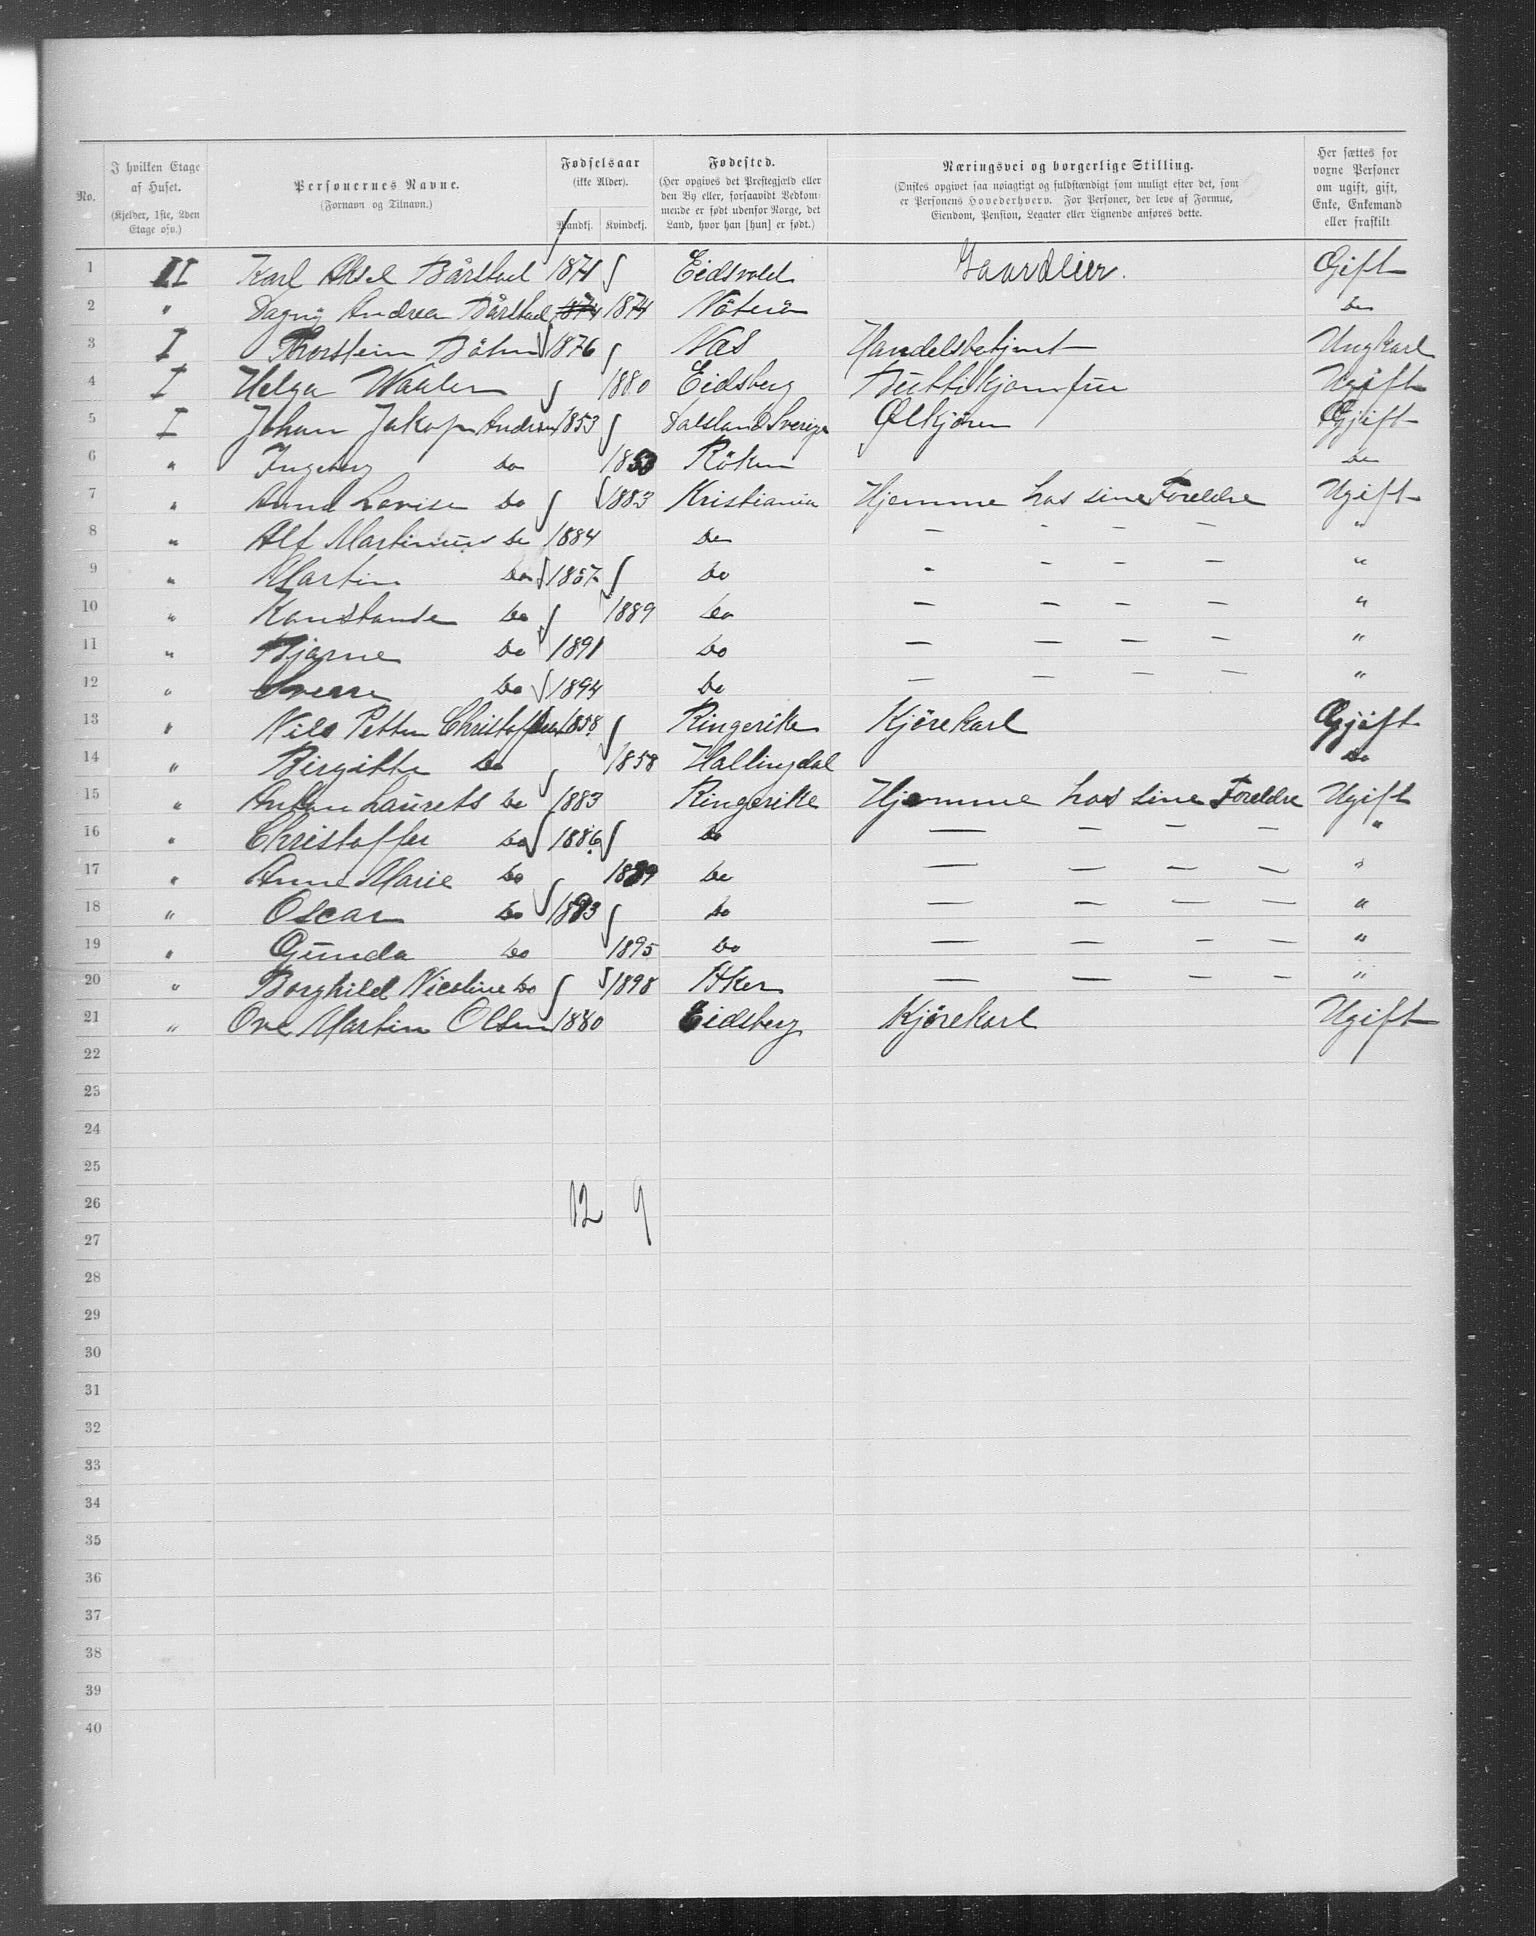 No. | I hvilken Etage af Huset. (Kjelder, 1ste, 2den Etage osv.) | Personernes Navne. (Fornavn og Tilnavn.) | Fødselsaar (ikke Alder). Mandkj. | Kvindekj. | Fødested. (Her opgives det Prestegjæld eller den By eller, forsaavidt Vedkommende er født udenfor Norge, det Land, hvor han [hun] er født.) | Næringsvei og borgerlige Stilling. (Ønskes opgivet saa nøiagtigt og fuldstændigt som muligt efter det, som er Personens Hovederhverv. For Personer, der leve af Formue, Eiendom, Pension, Legater eller Lignende anføres dette. | Her sættes for voxne Personer om ugift, gift, Enke, Enkemand eller fraskilt
1 II Karl Aksel Bårstad 1871 Eidsvold Gaardeier. Gift
2 " Dagny Andrea Bårstad 1874 1874 Nöterö Do
3 I Thorstein Böhn 1876 Næs Handelsbetjent Ungkarl
4 I Helga Waaler 1880 Eidsberg Buttikjomfru Ugift
5 I Johan Jakop Andersen 1853 Dalsland Sverige Ølkjörer Gjift
6 " Ingeborg do 1850 Röken Do
7 " Anna Lovise Do 1883 Kristiania Hjemme hos sine Foreldre Ugift
8 " Alf Martinius Do 1884 Do — - — — "
9 " Martin Do 1887 Do - - — — "
10 " Konstanse Do 1889 Do — — — — "
11 " Bjarne Do 1891 Do — — — — "
12 " Sverre Do 1894 Do — — — — "
13 " Nils Petter Christoffersen 1858 Ringerike Kjörekarl Gjift
14 " Birgitte Do 1858 Hallingdal Do
15 " Anton Laurets Do 1883 Ringerike Hjemme hos sine Foreldre Ugift
16 " Christoffer Do 1886 Do — — — — "
17 " Anne Marie Do 1889 Do — — — — "
18 " Oscar Do 1893 Do — — — — "
19 " Gunda Do 1895 Do — — — — "
20 " Borghild Nicoline Do 1898 Aker — — — — "
21 " Ove Martin Olsen 1880 Eidsberg Kjörekarl Ugift
22
23
24
25
26 12 9
27
28
29
30
31
32
33
34
35
36
37
38
39
40